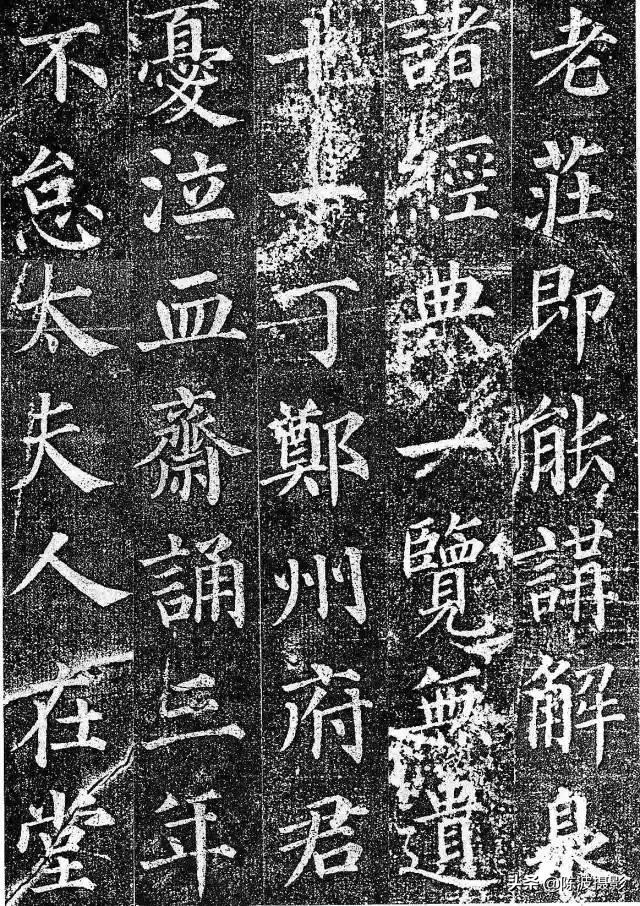 老莊即能講解臮
諸經典一覽無遺
十一丁鄭州府君
憂泣血齋誦三年
不怠太夫人在堂
头条 @陈波摄影